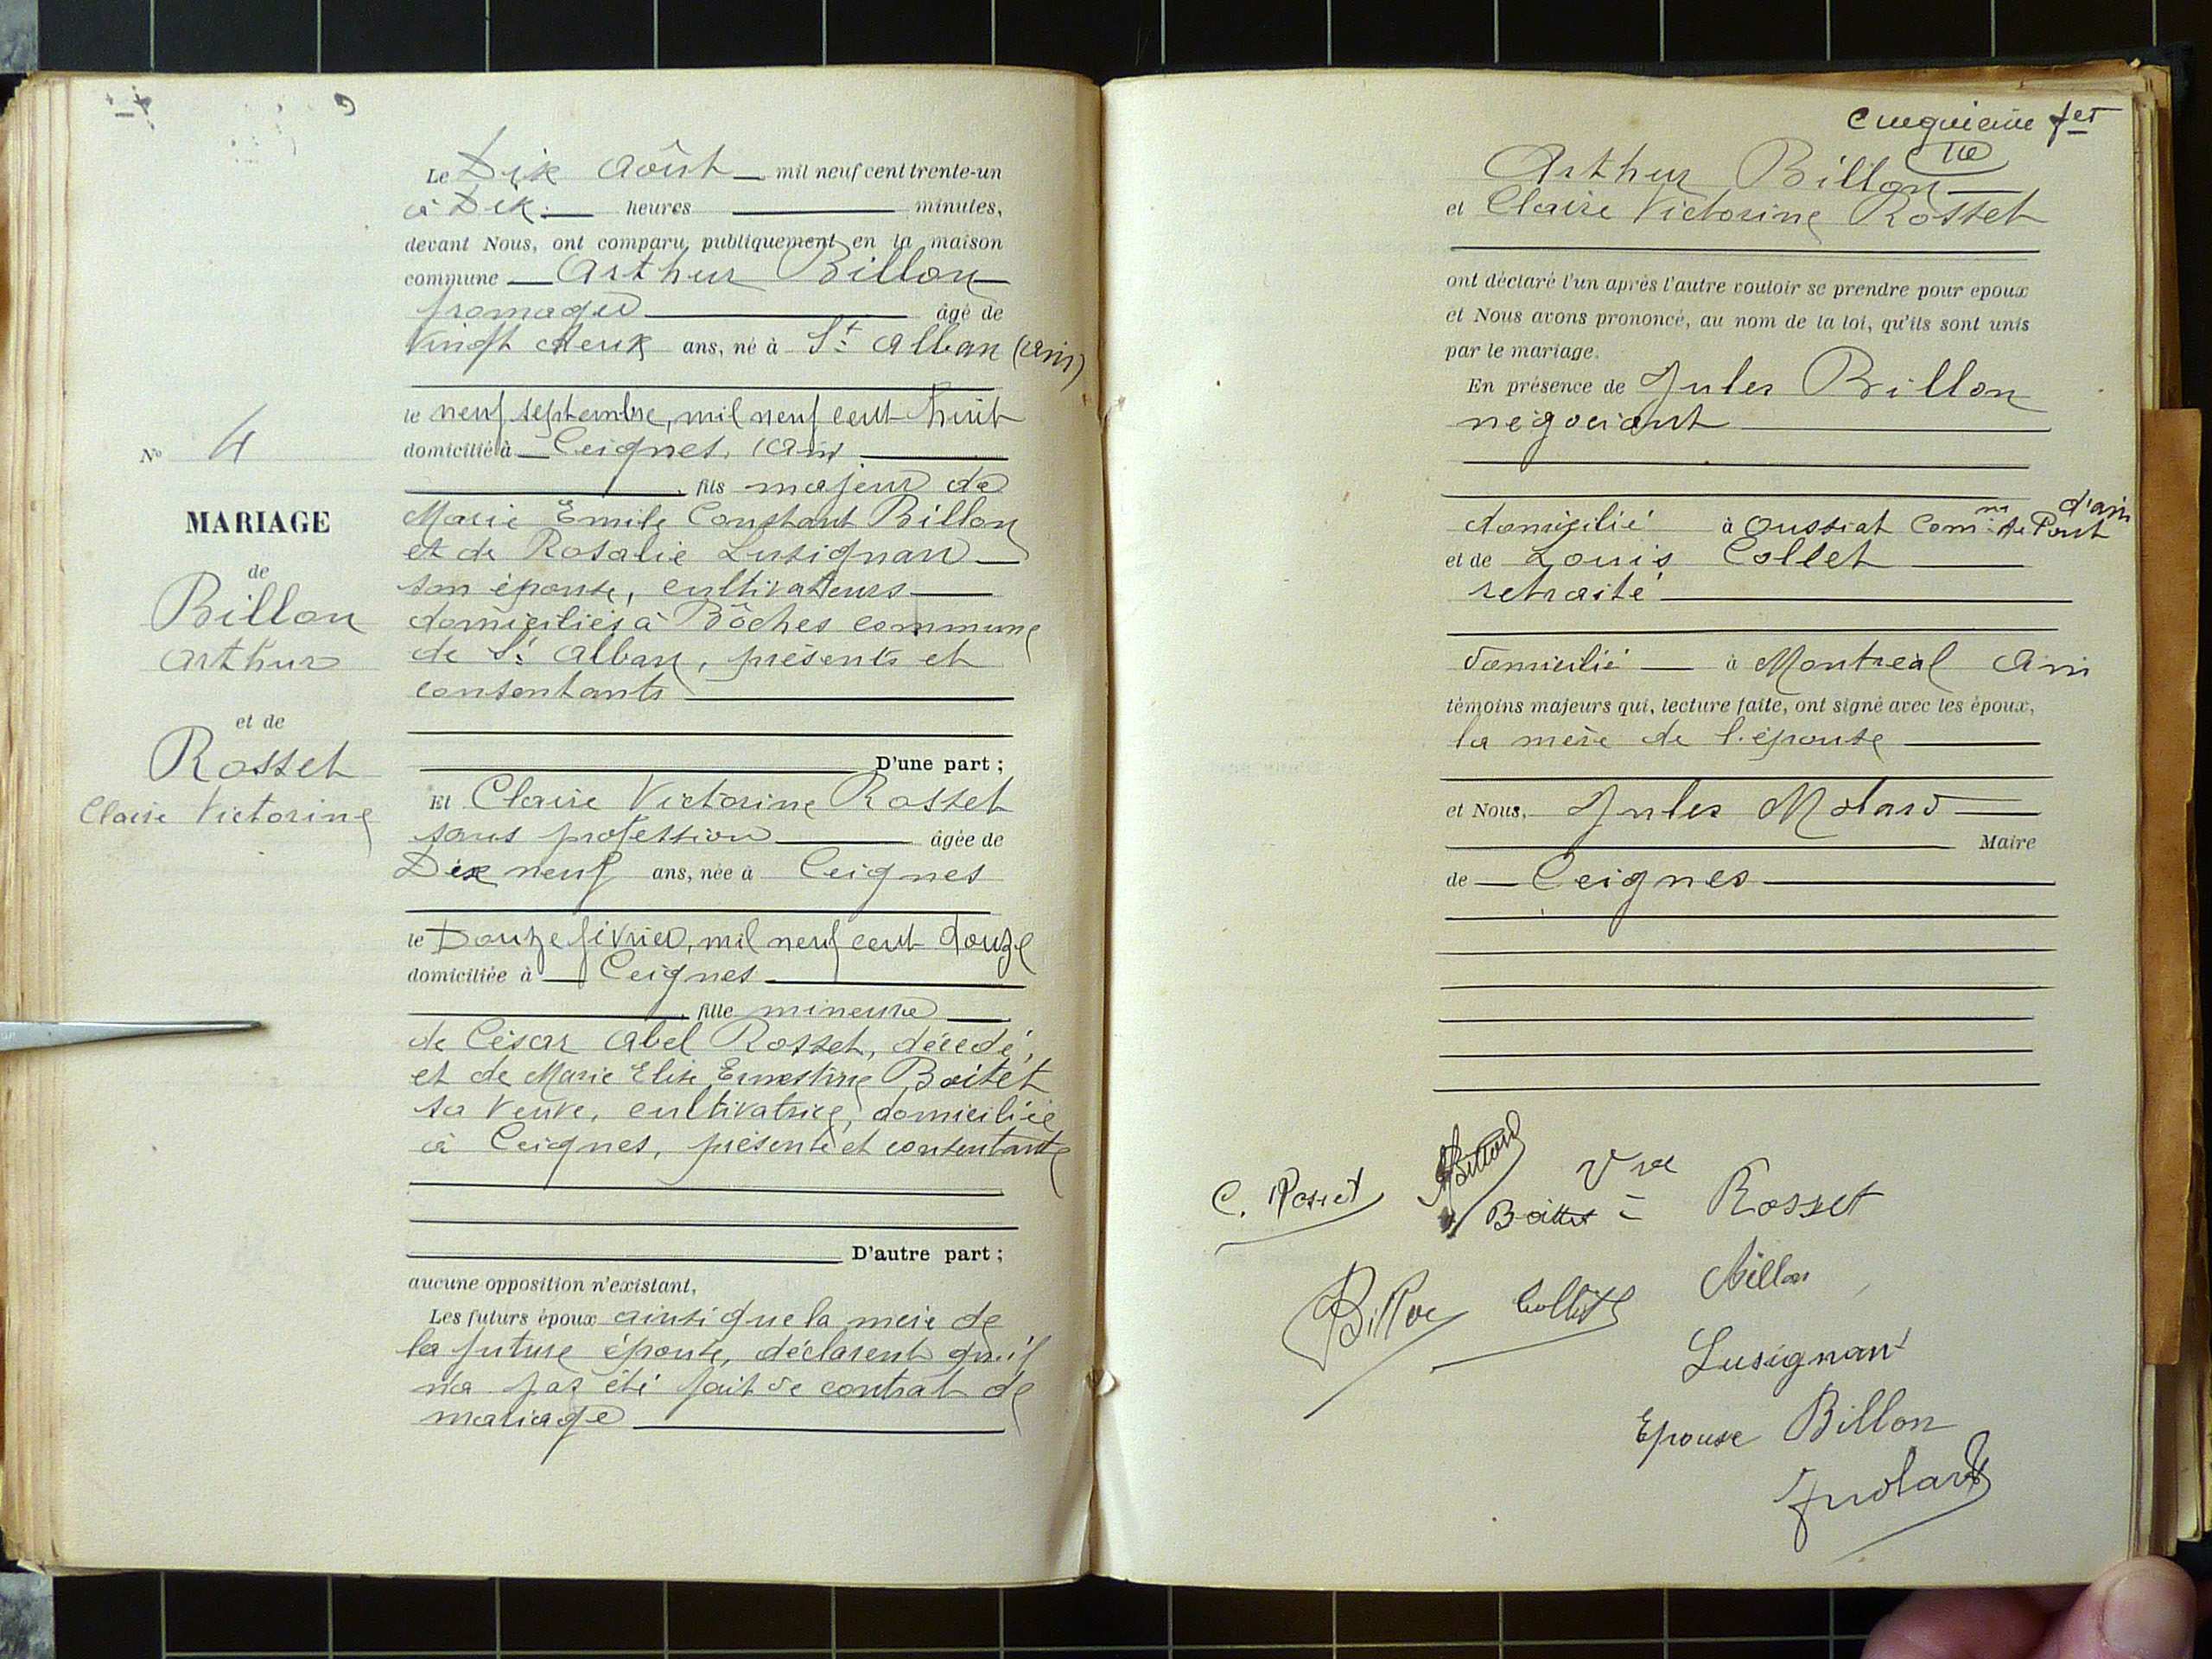 Le Dix Août mil neuf cent trente-un
à Dix heures minutes,
devant Nous, ont comparu publiquement en la maison
commune Arthur Billon
fromager âgé de
Vingt deux ans, né à St Alban (Ain)
le neuf septembre, mil neuf cent huit
domicilié à Ceignes, (Ain)
fils majeur de
Marie Emile Constant Billon
et de Rosalie Lusignan
son épouse, cultivateurs
domiciliés à Bôches commune
de St Alban, présents et
consentants
D'une part ;
Nº 4
MARIAGE
de
Billon
Arthur
et de
Rosset
Claire Victorine
Et Claire Victorine Rosset
sans profession âgée de
Dix neuf ans, née à Ceignes
le Douze février, mil neuf cent douze
domiciliée à Ceignes
fille mineure
de César Abel Rosset, décédé,
et de Marie Elise Ernestine Boitet
sa veuve, cultivatrice, domiciliée
à Ceignes, présente et consentante
D'autre part ;
aucune opposition n'existant,
Les futurs époux ainsi que la mère de
la future épouse, déclarent qu'il
n'a pas été fait de contrat de
mariage
cinquième fet
Arthur Billon
et Claire Victorine Rosset
ont déclaré l'un après l'autre vouloir se prendre pour epoux
et Nous avons prononcé, au nom de la loi, qu'ils sont unis
par le mariage.
En présence de Jules Billon
négociant
domicilié à Oussiat Comne de Pont d'ain
et de Louis Collet
retraité
domicilié à Montréal Ain
témoins majeurs qui, lecture faite, ont signé avec les époux,
la mère de l'épouse
et Nous, Jules Molard
Maire
de Ceignes
C. Rosset ABillon Vve
Boittet = Rosset
Billon Collet Billon
Lusignan
Epouse Billon
JMolard